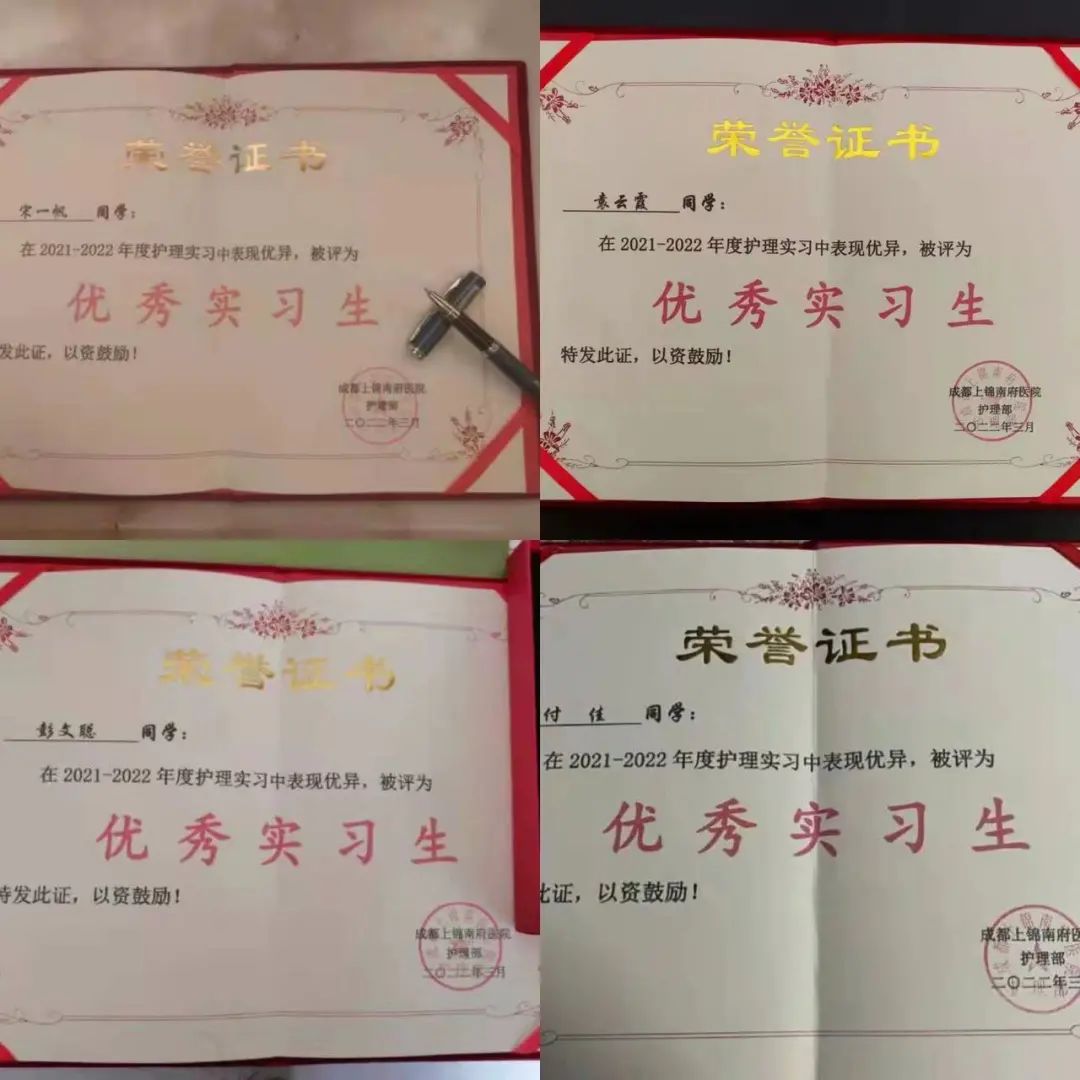 荣誉证书
宋一帆 同学：
在2021-2022年度护理实习中表现优异，被评为
优秀实习生
发此证，以资鼓励！
成都上锦南府医院
护理部
二〇二二年三月
荣誉证书
袁云霞 同学：
在2021-2022年度护理实习中表现优异，被评为
优秀实习生
特发此证，以资鼓励！
成都上锦南府医院
护理部
二〇二二年三月
荣誉证书
彭文聪 同学：
在2021-2022年度护理实习中表现优异，被评为
优秀实习生
特发此证，以资鼓励！
成都上锦南府医院
护理部
二〇二二年三月
荣誉证书
付 佳 同学：
在2021-2022年度护理实习中表现优异，被评为
优秀实习生
此证，以资鼓励！
成都上锦南府医
护理部
二〇二二年三